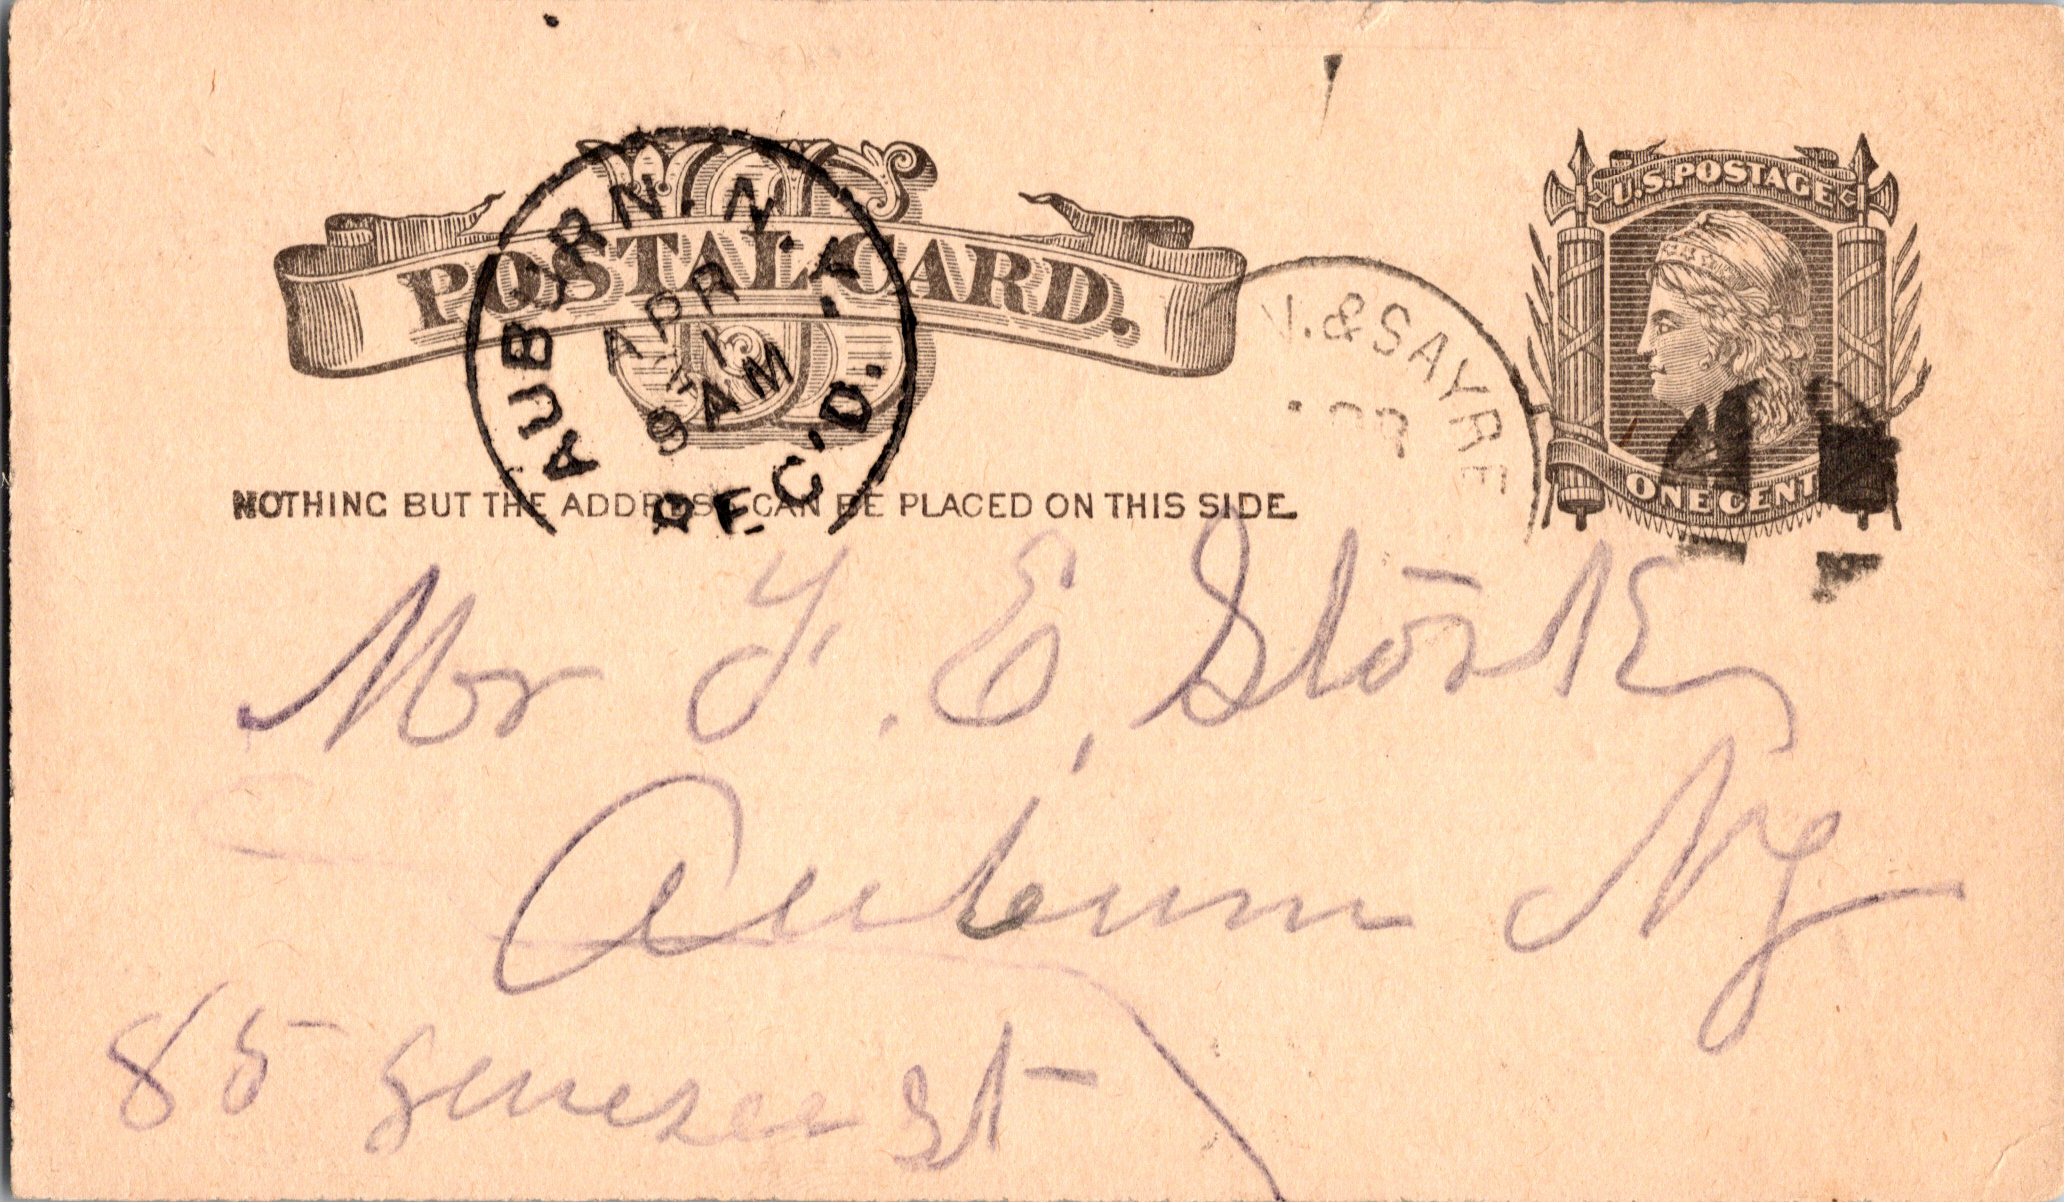 US
POSTAL CARD.
U.S. POSTAGE
ONE CENT
AUBURN. N. Y.
APR
1
9 AM
REC'D.
N. & SAYRE
APR
NOTHING BUT THE ADDRESS CAN BE PLACED ON THIS SIDE.
Mr F. E. Storke
Auburn Ny
85 Genesee st